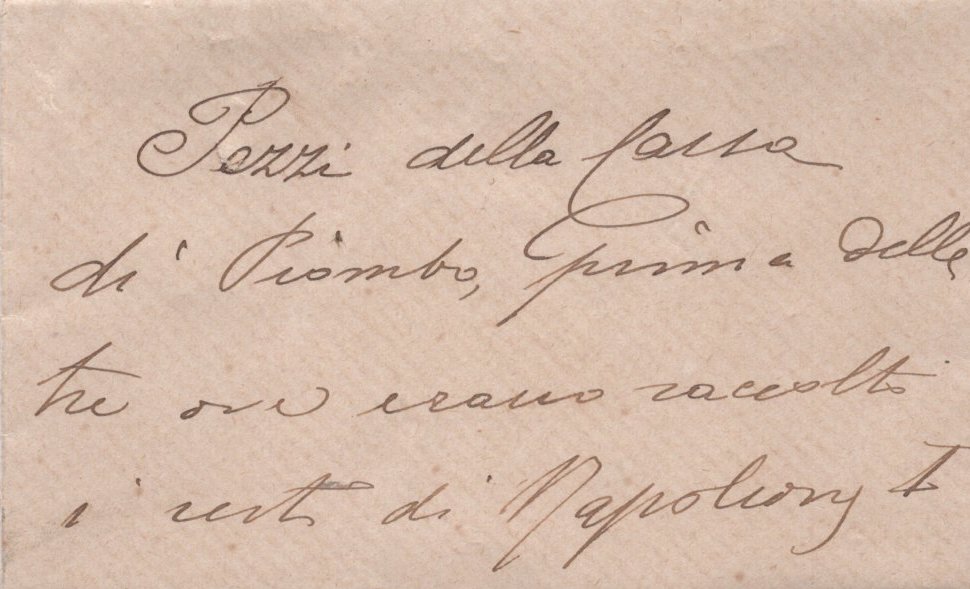 Pezzi della Cassa
di Piombo, prima delle
tre ove erano raccolti
i resti di Napoleone I